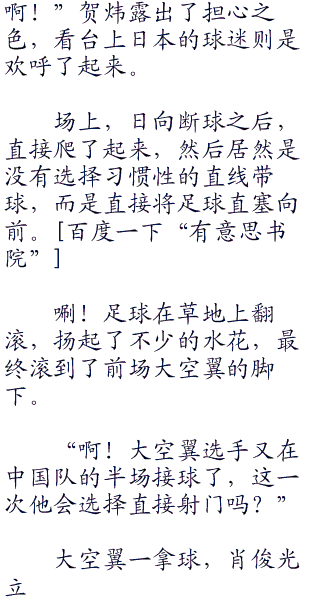 啊！”贺炜露出了担心之
色，看台上日本的球迷则是
欢呼了起来。
场上，日向断球之后，
直接爬了起来，然后居然是
没有选择习惯性的直线带
球，而是直接将足球直塞向
前。[百度一下“有意思书
院”]
唰！足球在草地上翻
滚，扬起了不少的水花，最
终滚到了前场大空翼的脚
下。
“啊！大空翼选手又在
中国队的半场接球了，这一
次他会选择直接射门吗？”
大空翼一拿球，肖俊光
立